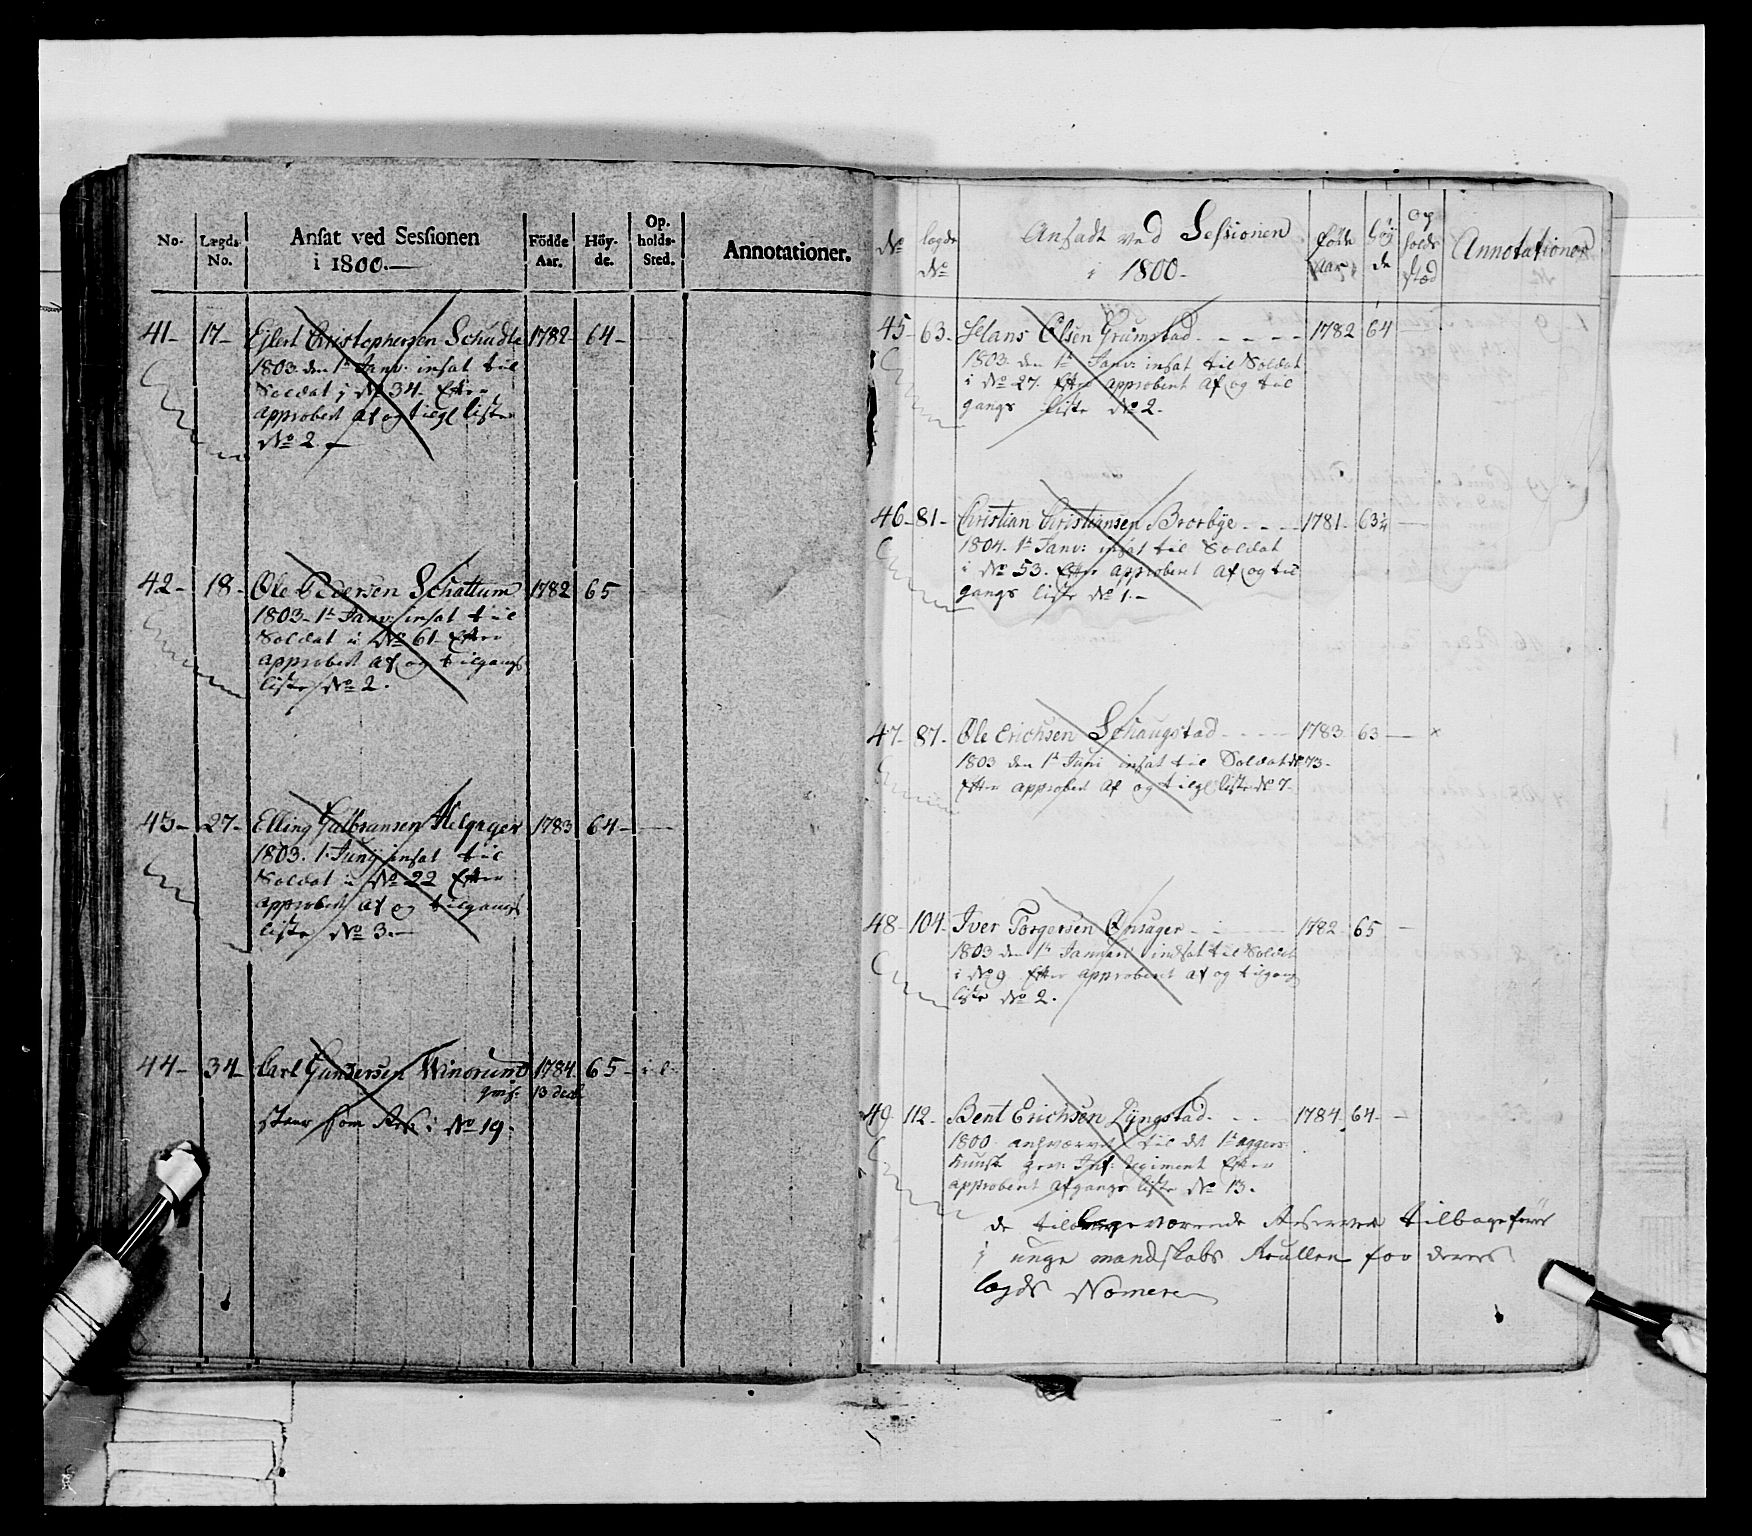 No. Lægds No. Ansat ved Sessionen i 1800.— Födde Aar. Höy-de. Op-holds-Sted. Annotationer.
41- 17- Ejlert Christophersen Schudte 1782- 64-
1803. den 1te Janv: insat til
Soldat i No 34. Efter
approbert af og tilg: liste
No 2.
42- 18- Ole Pedersen Schattum 1782 65
1803- 1te Janv: insat til
Soldat i No 61. Efter
approbert af og tilgangs
liste No 2.
43- 27- Elling Gulbransen Helgager 1783 64-
1803. 1. Junij insat til
Soldat i No 22 Efter
approbert af og tilgangs
liste No 3.-
44- 34- Carl Gundersen Winorund 1784 65-
13 dec:
staar som Res: i No 19.
No lægds No Ansadt ved Sessionen i 1800- fötte aar Höy de Op holds stæd Annotationer
45- 63- Hans Olsen Grumstad 1782 64
1803. den 1te Janv: insat til Soldat
i No 27. Efter approbert af og til
gangs liste No 2.
46- 81- Christian Christiansen Brorbye 1781- 63¼
1804. 1te Janv: insat til Soldat
i No 53. Efter approbert af og til
gangs liste No 1.-
47- 87- Ole Erichsen Schaugstad 1783 63 x
1803 den 1te Juni insat til Soldat No 73-
Efter approbert af og tilg: liste No 7-
48- 104. Iver Torgersen Onsager 1782- 65
1803 den 1te Januari indsat til Soldat
i No 9. Efter approbert af og tilgang
liste No 2.
49 112- Bent Erichsen Lyngstad 1784 64-
1800 anhvervet til det 1te agers
huusk gev: Inf: Regiment Efter
approbert afgangs liste No 13.
de tilbageværende Reserver tilbageføres
i unge mandskabs Roullen for deres
lægds Nomere